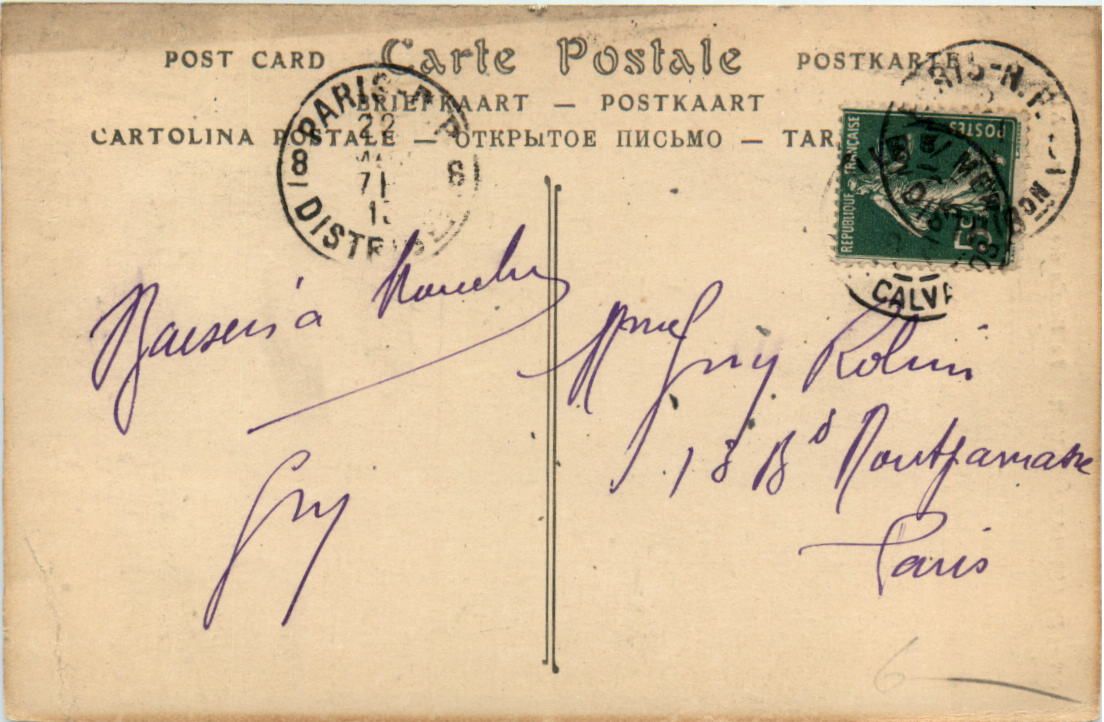 POST CARD Carte Postale POSTKARTE
BRIEFKAART — POSTKAART
CARTOLINA POSTALE — ОТКРЫТОЕ ПИСЬМО — TAR
PARIS
22
71
8
DISTRIB
REPUBLIQUE FRANÇAISE
POSTES
5
CALV
Baisers à
Guy
Mme Guy Robin
138 Bd Montparnasse
Paris
6